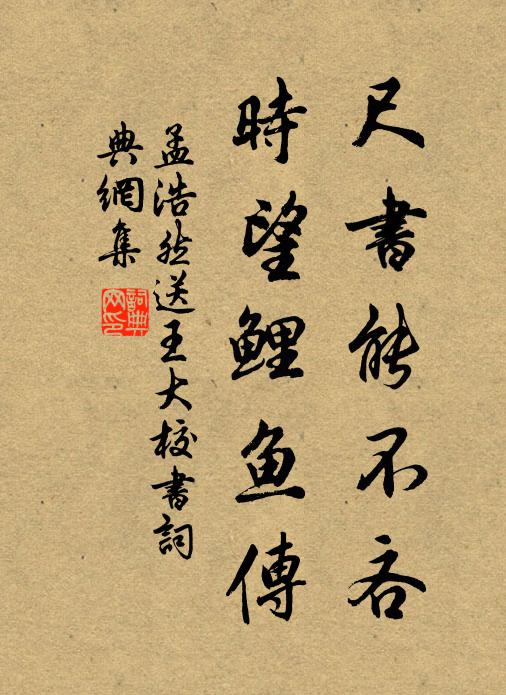 尺書能不吝
時望鯉魚傳
孟浩然送王大校書詞
典網集
詞典網印